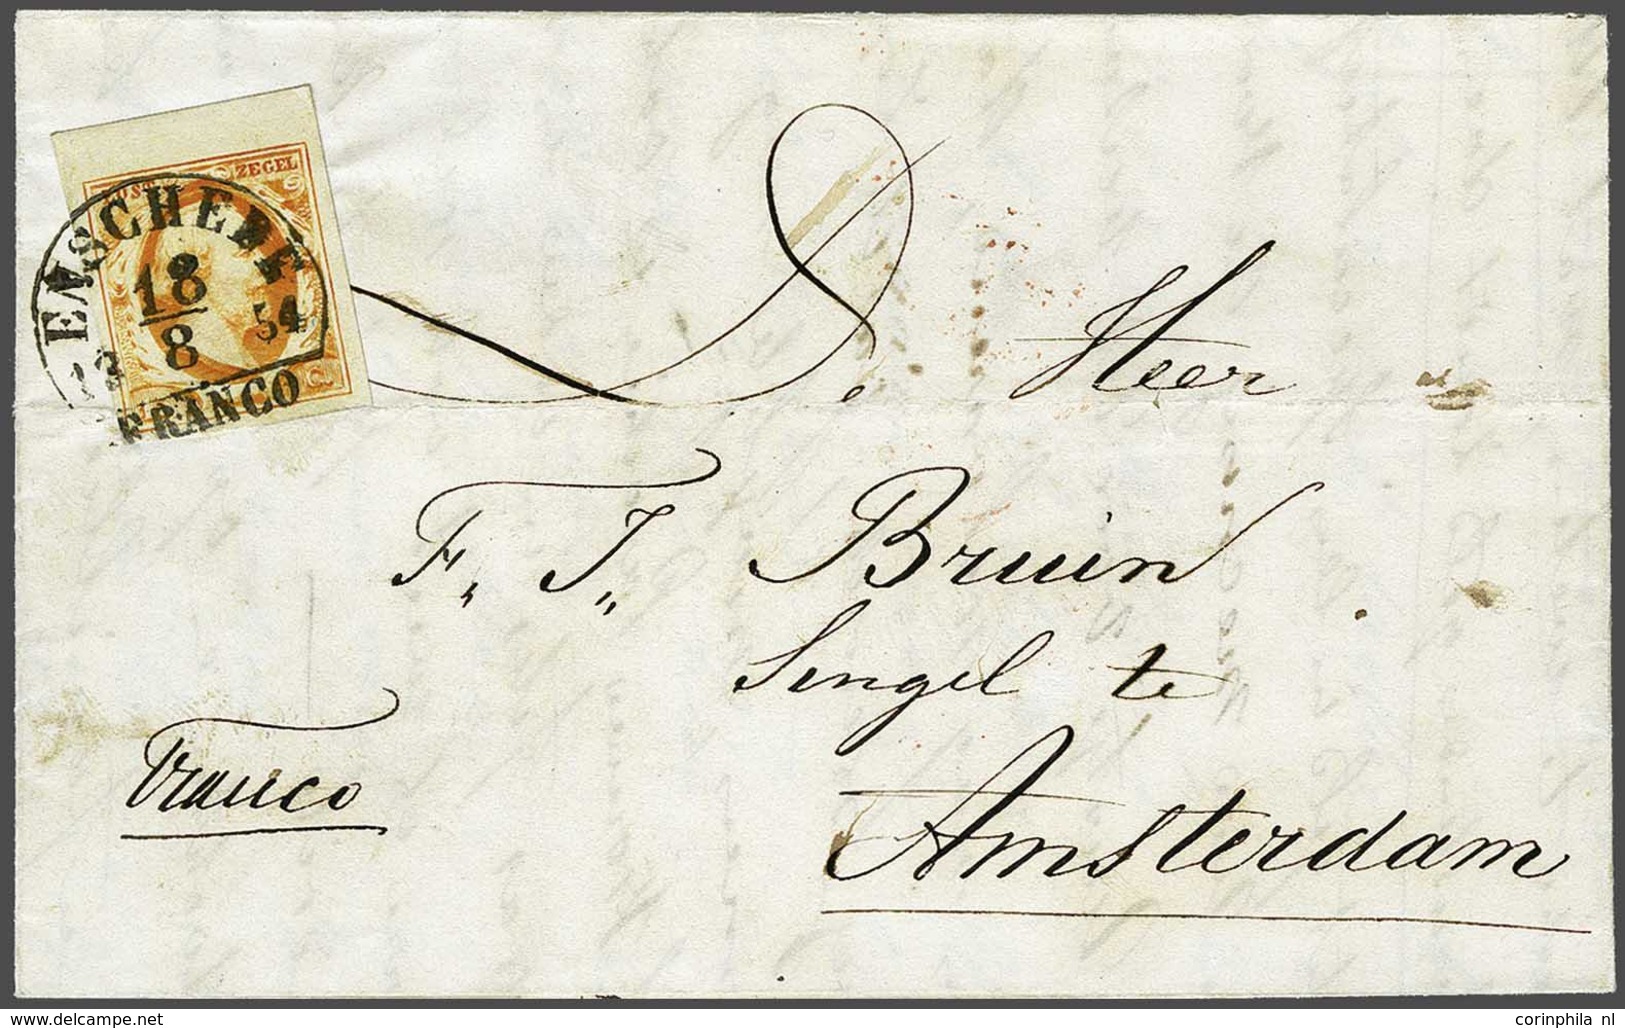 POST ZEGEL
ENSCHEDE
18
8
54
C.
FRANCO
De Heer
F. J. Bruin
Singel te
Amsterdam
Franco
www.delcampe.net
corinphila nl